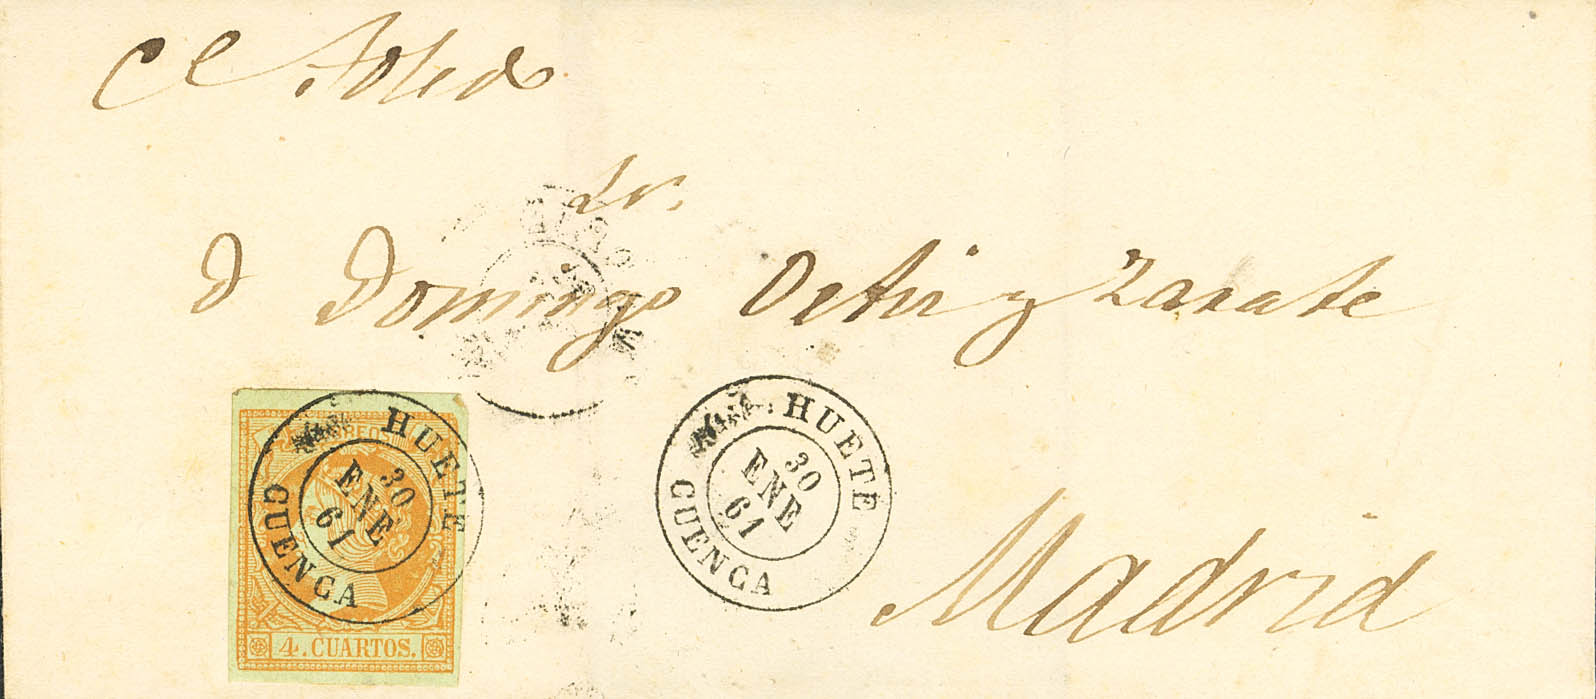 CC Toledo
Sr.
D Domingo Ortiz y Zarate
Madrid
CORREOS
4. CUARTOS.
HUETE
30
ENE
61
CUENCA
HUETE
30
ENE
61
CUENCA